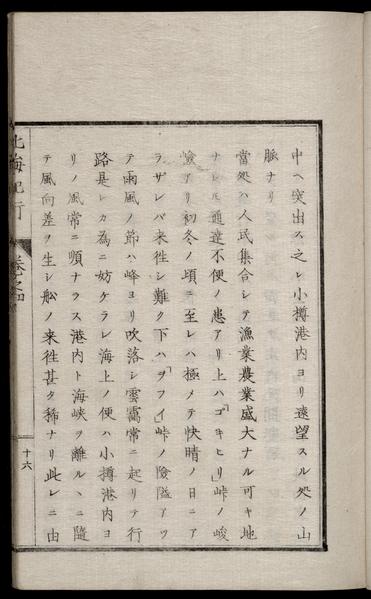 中ヘ突出ス之レ小樽港内ヨリ遠望スル処ノ山
脈ナリ
當処ハ人民集合シテ漁業農業盛大ナル可キ地
ナレトモ通運不便ノ患アリ上ハ「ゴキヒリ」峠ノ峻
嶮アリ初冬ノ頃ニ至レハ極メテ快晴ノ日ニア
ラザレバ来徃シ難ク下ハ「ヲフイ」峠ノ險隘アツ
テ雨風ノ節ハ峰ヨリ吹落シ雲霱常ニ起リテ行
路是レカ為ニ妨ケラレ海上ノ便ハ小樽港内ヨ
リノ風常ニ順ナラス港内ト海峡ヲ離ルヽニ隨
テ風向差ヲ生シ舩ノ来徃甚タ稀ナリ此レニ由
北海紀行
巻之四
十六